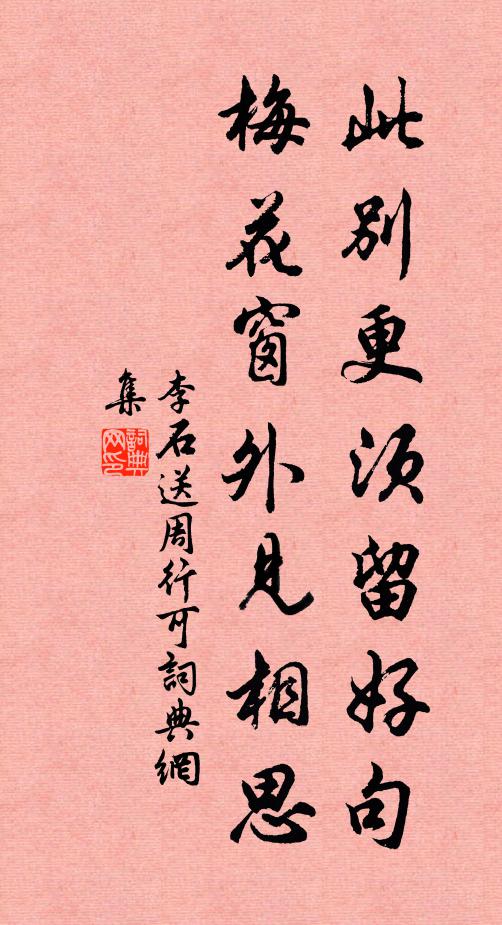 此別更須留好句
梅花窗外見相思
李石送周行可詞典網
集
詞典網印